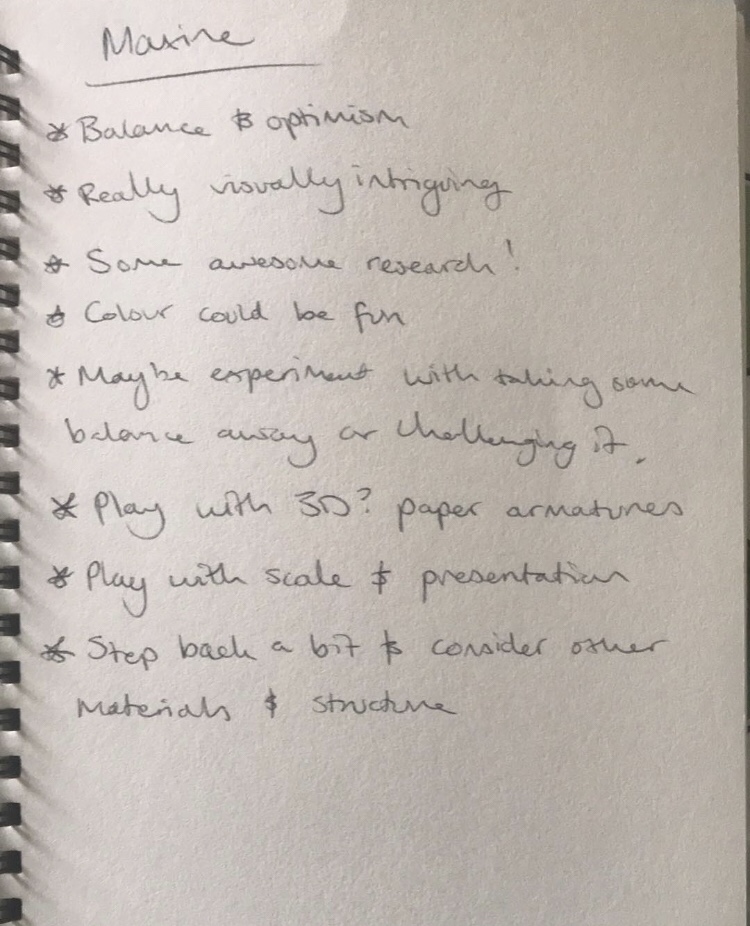 Maxine
* Balance & optimism
* Really visually intriguing
* Some awesome research!
* Colour could be fun
* Maybe experiment with taking some
balance away or challenging it.
* Play with 3D? paper armatures
* Play with scale & presentation
* Step back a bit & consider other
materials & structure